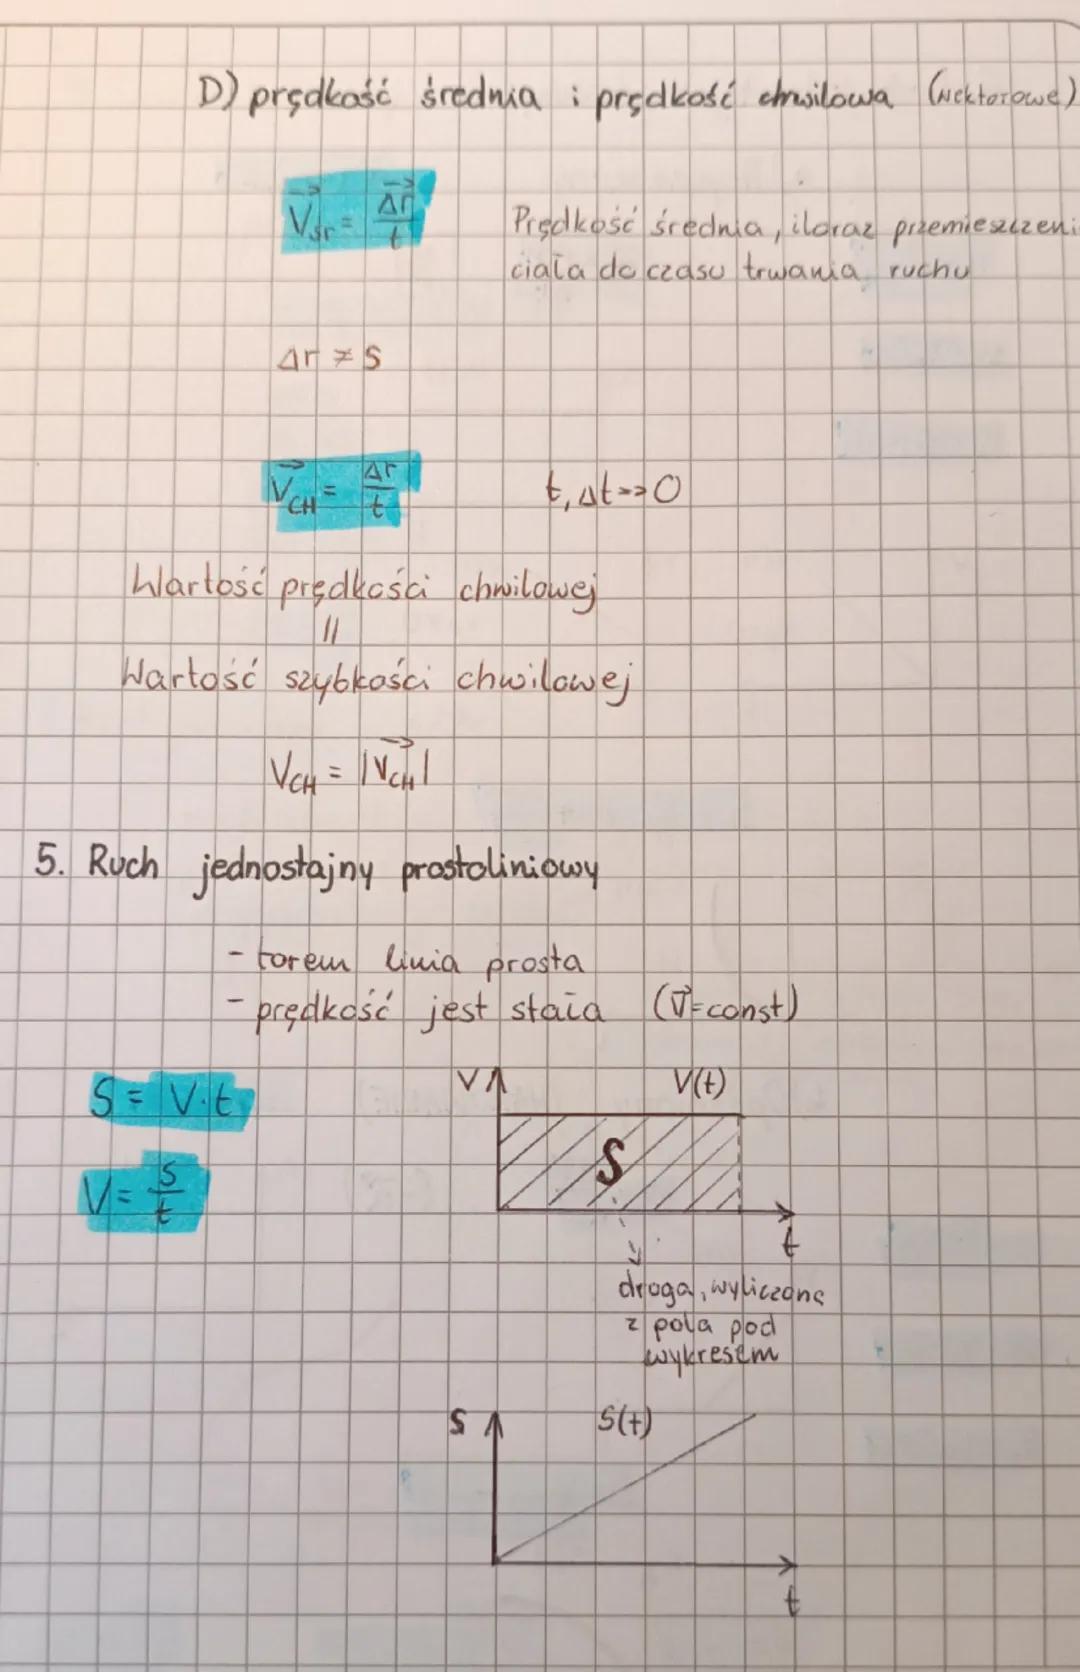 D) prędkość średnia i prędkość chwilowa (wektorowe)
V⃗śr = Δr⃗/t
Prędkość średnia, iloraz przemieszczeni
ciała do czasu trwania ruchu
Δr ≠ S
V⃗CH = Δr/t
t, Δt->0
Wartość prędkości chwilowej
||
Wartość szybkości chwilowej
VCH = |V⃗CH|
5. Ruch jednostajny prostoliniowy
- torem linia prosta
- prędkość jest stała (V⃗=const)
S = V·t
V = S/t
V
V(t)
S
t
droga, wyliczona
z pola pod
wykresem
S
S(t)
t